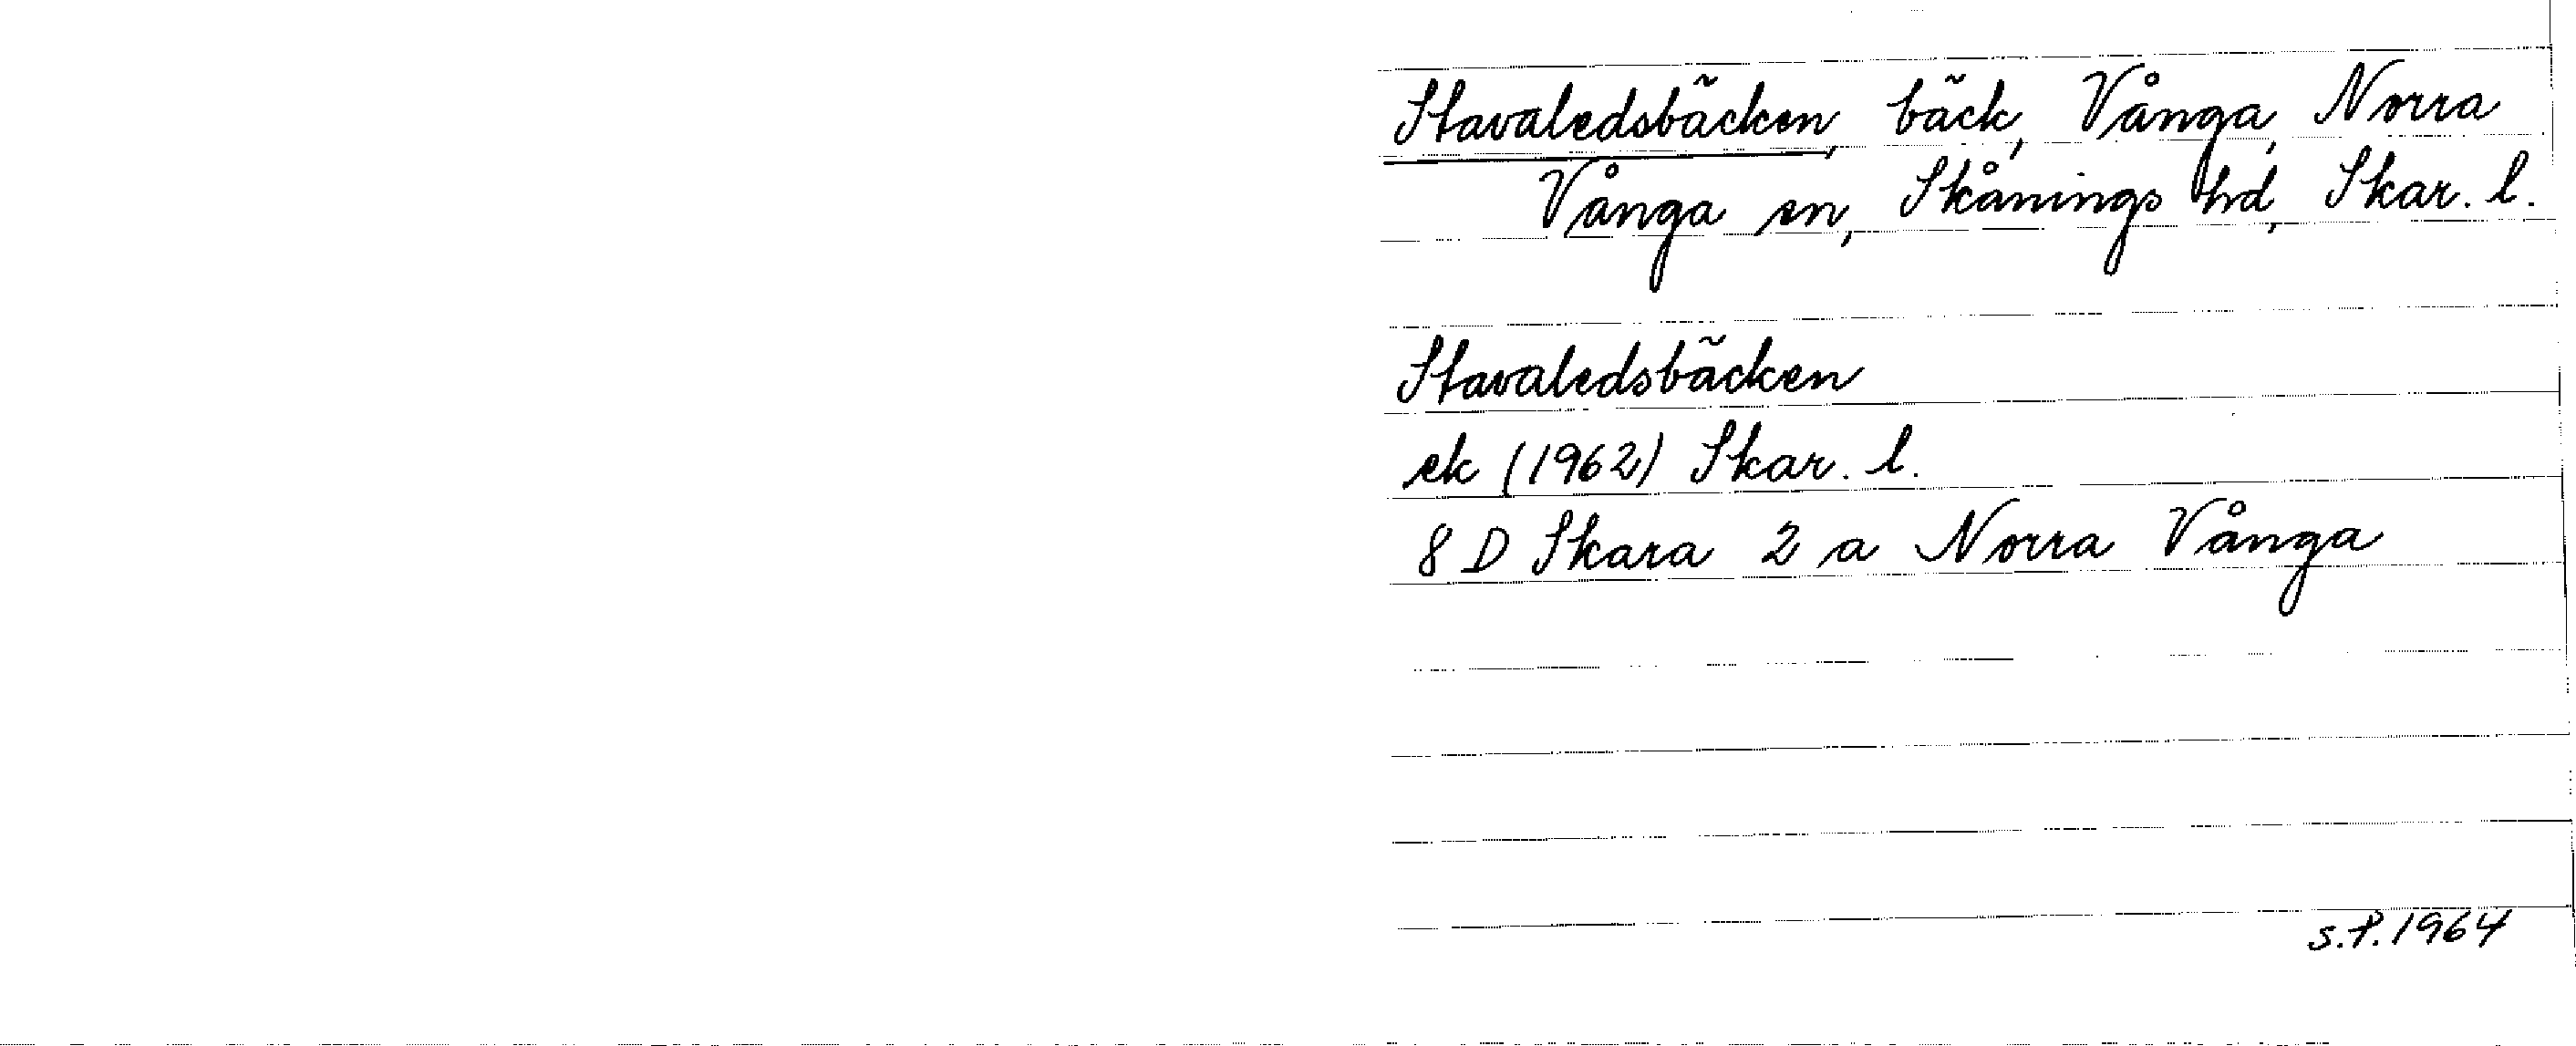 Stavaledsbäcken, bäck, Vånga, Norra
Vånga sn, Skånings hd, Skar. l.
Stavaledsbäcken
ek (1962) Skar. l.
8 D Skara 2 a Norra Vånga
S.P. 1964